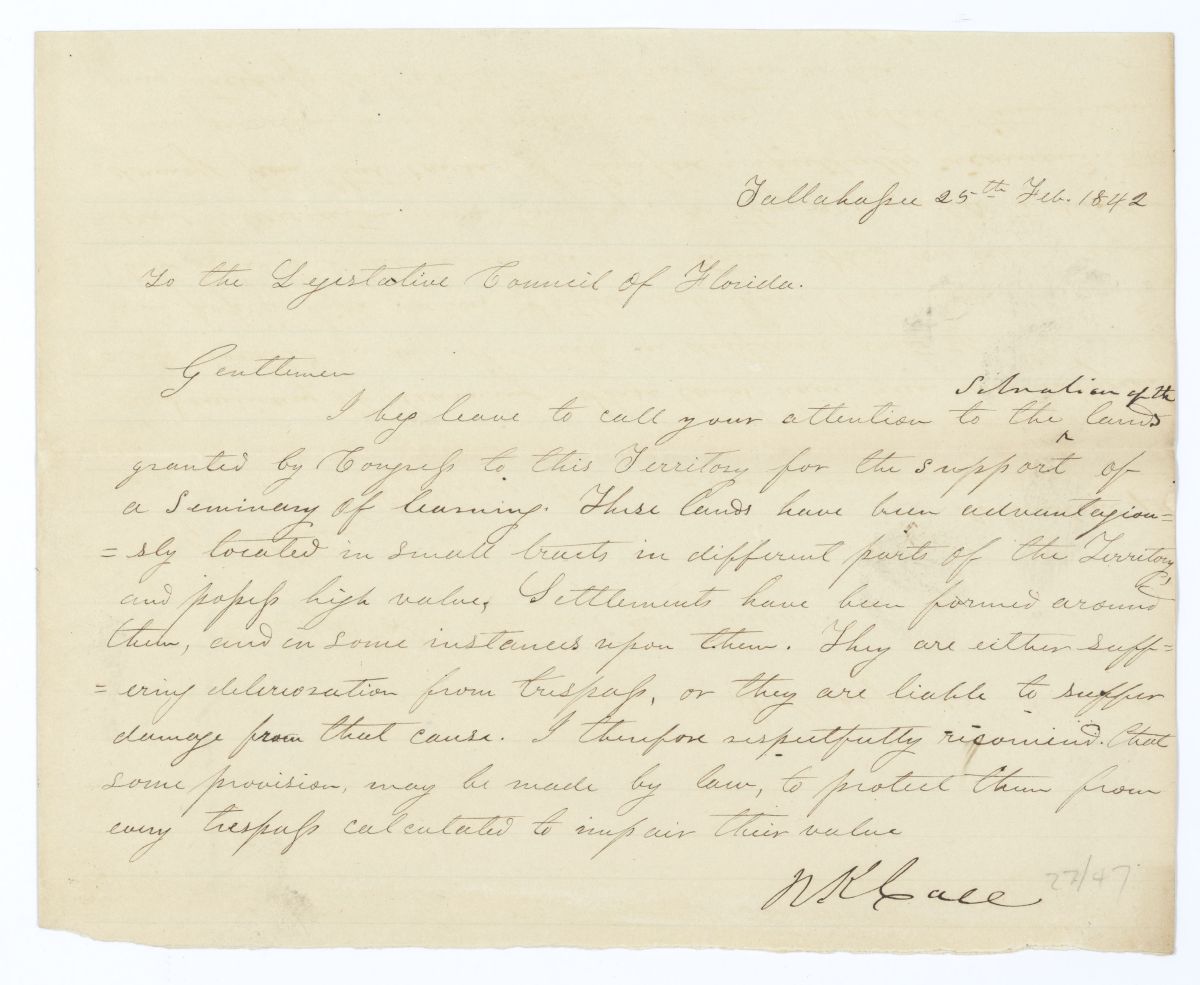 Tallahassee 25th Feb. 1842
To the Legislative Council of Florida.
Gentlemen
situation of the
I beg leave to call your attention to the ^ lands
granted by Congress to this Territory for the support of
a Seminary of learning. These lands have been advantagiou=
=sly located in small tracts in different parts of the Territory
and possess high value. Settlements have been formed around
them, and in some instances upon them. They are either suff=
=ering deterioration from trespass, or they are liable to suffer
damage from that cause. I therefore respectfully recomend. that
some provision, may be made by law, to protect them from
every trespass calculated to impair their value
R K Call
22/47